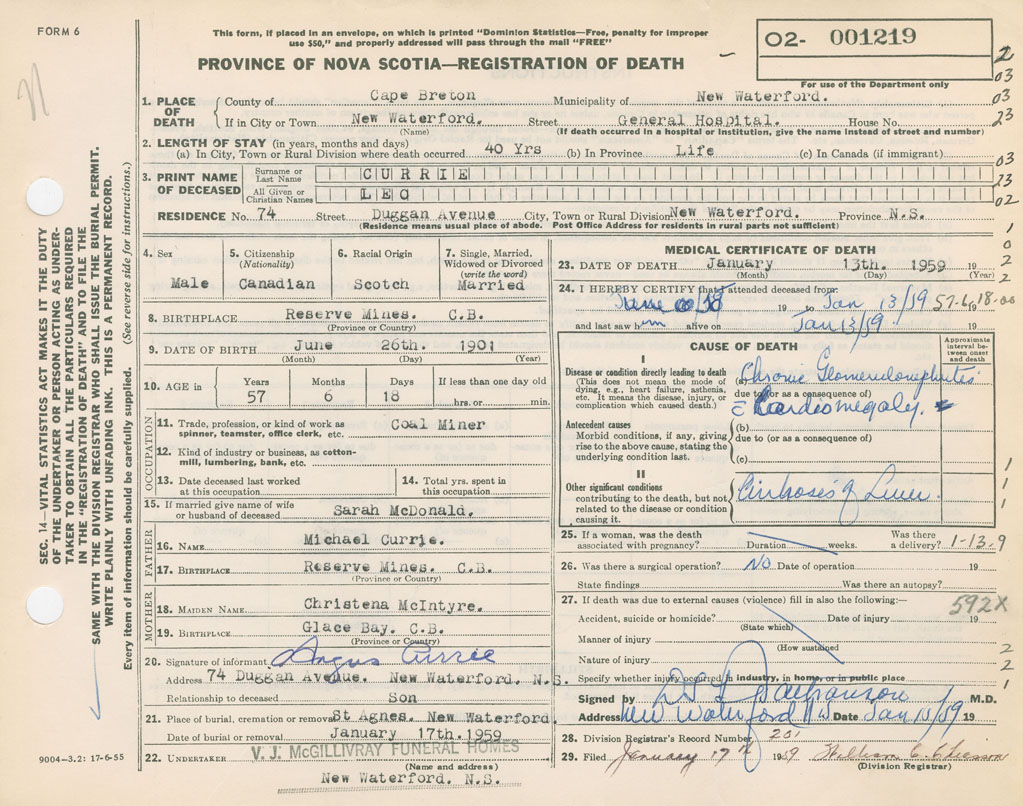 FORM 6
This form, if placed in an envelope, on which is printed "Dominion Statistics—Free, penalty for improper
use $50," and properly addressed will pass through the mail "FREE"
PROVINCE OF NOVA SCOTIA—REGISTRATION OF DEATH
02- 001219
For use of the Department only
1. PLACE OF DEATH County of Cape Breton Municipality of New Waterford.
If in City or Town New Waterford. Street General Hospital. House No.
(Name) (If death occurred in a hospital or institution, give the name instead of street and number)
2. LENGTH OF STAY (in years, months and days)
(a) In City, Town or Rural Division where death occurred 40 Yrs (b) In Province Life (c) In Canada (if immigrant)
3. PRINT NAME OF DECEASED Surname or Last Name CURRIE
All Given or Christian Names LEO
RESIDENCE No. 74 Street Duggan Avenue City, Town or Rural Division New Waterford. Province N.S.
(Residence means usual place of abode. Post Office Address for residents in rural parts not sufficient)
4. Sex Male
5. Citizenship (Nationality) Canadian
6. Racial Origin Scotch
7. Single, Married, Widowed or Divorced (write the word) Married
8. BIRTHPLACE Reserve Mines. C.B.
(Province or Country)
9. DATE OF BIRTH June 26th. 1901
(Month) (Day) (Year)
10. AGE in Years Months Days If less than one day old
57 6 18 hrs. or min.
OCCUPATION
11. Trade, profession, or kind of work as spinner, teamster, office clerk, etc. Coal Miner
12. Kind of industry or business, as cotton-mill, lumbering, bank, etc.
13. Date deceased last worked at this occupation
14. Total yrs. spent in this occupation
15. If married give name of wife or husband of deceased Sarah McDonald.
FATHER
16. NAME Michael Currie.
17. BIRTHPLACE Reserve Mines. C.B.
(Province or Country)
MOTHER
18. MAIDEN NAME Christena McIntyre.
19. BIRTHPLACE Glace Bay. C.B.
(Province or Country)
20. Signature of informant Angus Currie
Address 74 Duggan Avenue. New Waterford. N.S.
Relationship to deceased Son
21. Place of burial, cremation or removal St Agnes. New Waterford.
Date of burial or removal January 17th. 1959
22. UNDERTAKER V. J. McGILLIVRAY FUNERAL HOMES
(Name and address)
New Waterford. N.S.
MEDICAL CERTIFICATE OF DEATH
23. DATE OF DEATH January 13th. 1959 19
(Month) (Day) (Year)
24. I HEREBY CERTIFY that I attended deceased from:
June 58 19 to Jan 13/59 57-6-18-00
and last saw him alive on Jan 13/59. 19
CAUSE OF DEATH
Approximate interval between onset and death
I
Disease or condition directly leading to death
(This does not mean the mode of dying, e.g., heart failure, asthenia, etc. It means the disease, injury, or complication which caused death.)
(a) Chronic Glomerulonephritis
due to (or as a consequence of)
c Cardiomegaly.
Antecedent causes
Morbid conditions, if any, giving rise to the above cause, stating the underlying condition last.
(b)
due to (or as a consequence of)
(c)
II
Other significant conditions
contributing to the death, but not related to the disease or condition causing it.
Cirrhosis of Liver.
25. If a woman, was the death associated with pregnancy? Duration weeks. Was there a delivery? 1-13-9
26. Was there a surgical operation? NO Date of operation 19
State findings Was there an autopsy?
27. If death was due to external causes (violence) fill in also the following:— 592X
Accident, suicide or homicide? Date of injury 19
(State which)
Manner of injury
(How sustained
Nature of injury
Specify whether injury occurred in industry, in home, or in public place
Signed by M.D.
Address New Waterford NS Date Jan 15/59 19
28. Division Registrar's Record Number 201
29. Filed January 17th 1959
(Division Registrar)
2
03
03
23
03
23
02
1
0
2
2
1
1
1
2
2
1
SEC. 14—VITAL STATISTICS ACT MAKES IT THE DUTY
OF THE UNDERTAKER OR PERSON ACTING AS UNDER-
TAKER TO OBTAIN ALL THE PARTICULARS REQUIRED
IN THE "REGISTRATION OF DEATH" AND TO FILE THE
SAME WITH THE DIVISION REGISTRAR WHO SHALL ISSUE THE BURIAL PERMIT.
WRITE PLAINLY WITH UNFADING INK. THIS IS A PERMANENT RECORD.
Every item of information should be carefully supplied. (See reverse side for instructions.)
9004—3.2: 17-6-55